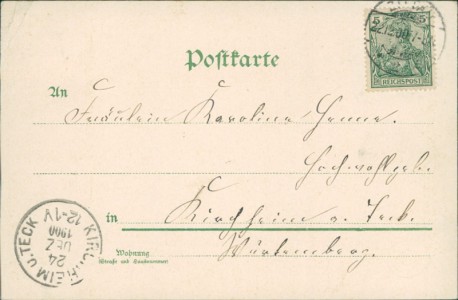 Postkarte
5 5
REICHSPOST
An
Fräulein Karoline Henne.
Hochwohlgeb.
in Kirchheim u. Teck.
Würtemberg.
Wohnung
(Straße und Hausnummer)
KIRCHHEIM U. TECK
24
DEZ
1900
12-1V